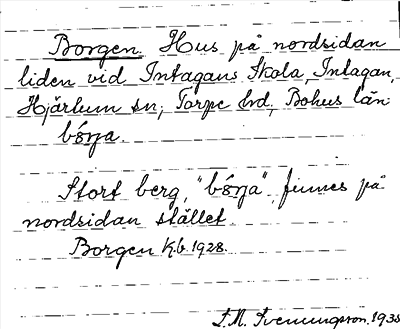 Borgen. Hus på nordsidan
liden vid Intagans Skola, Intagan,
Hjärtum sn, Torpe hd, Bohus län.
Stort berg, finnes på
nordsidan stället.
Borgen Kb. 1928.
S.M. Svenungson. 193